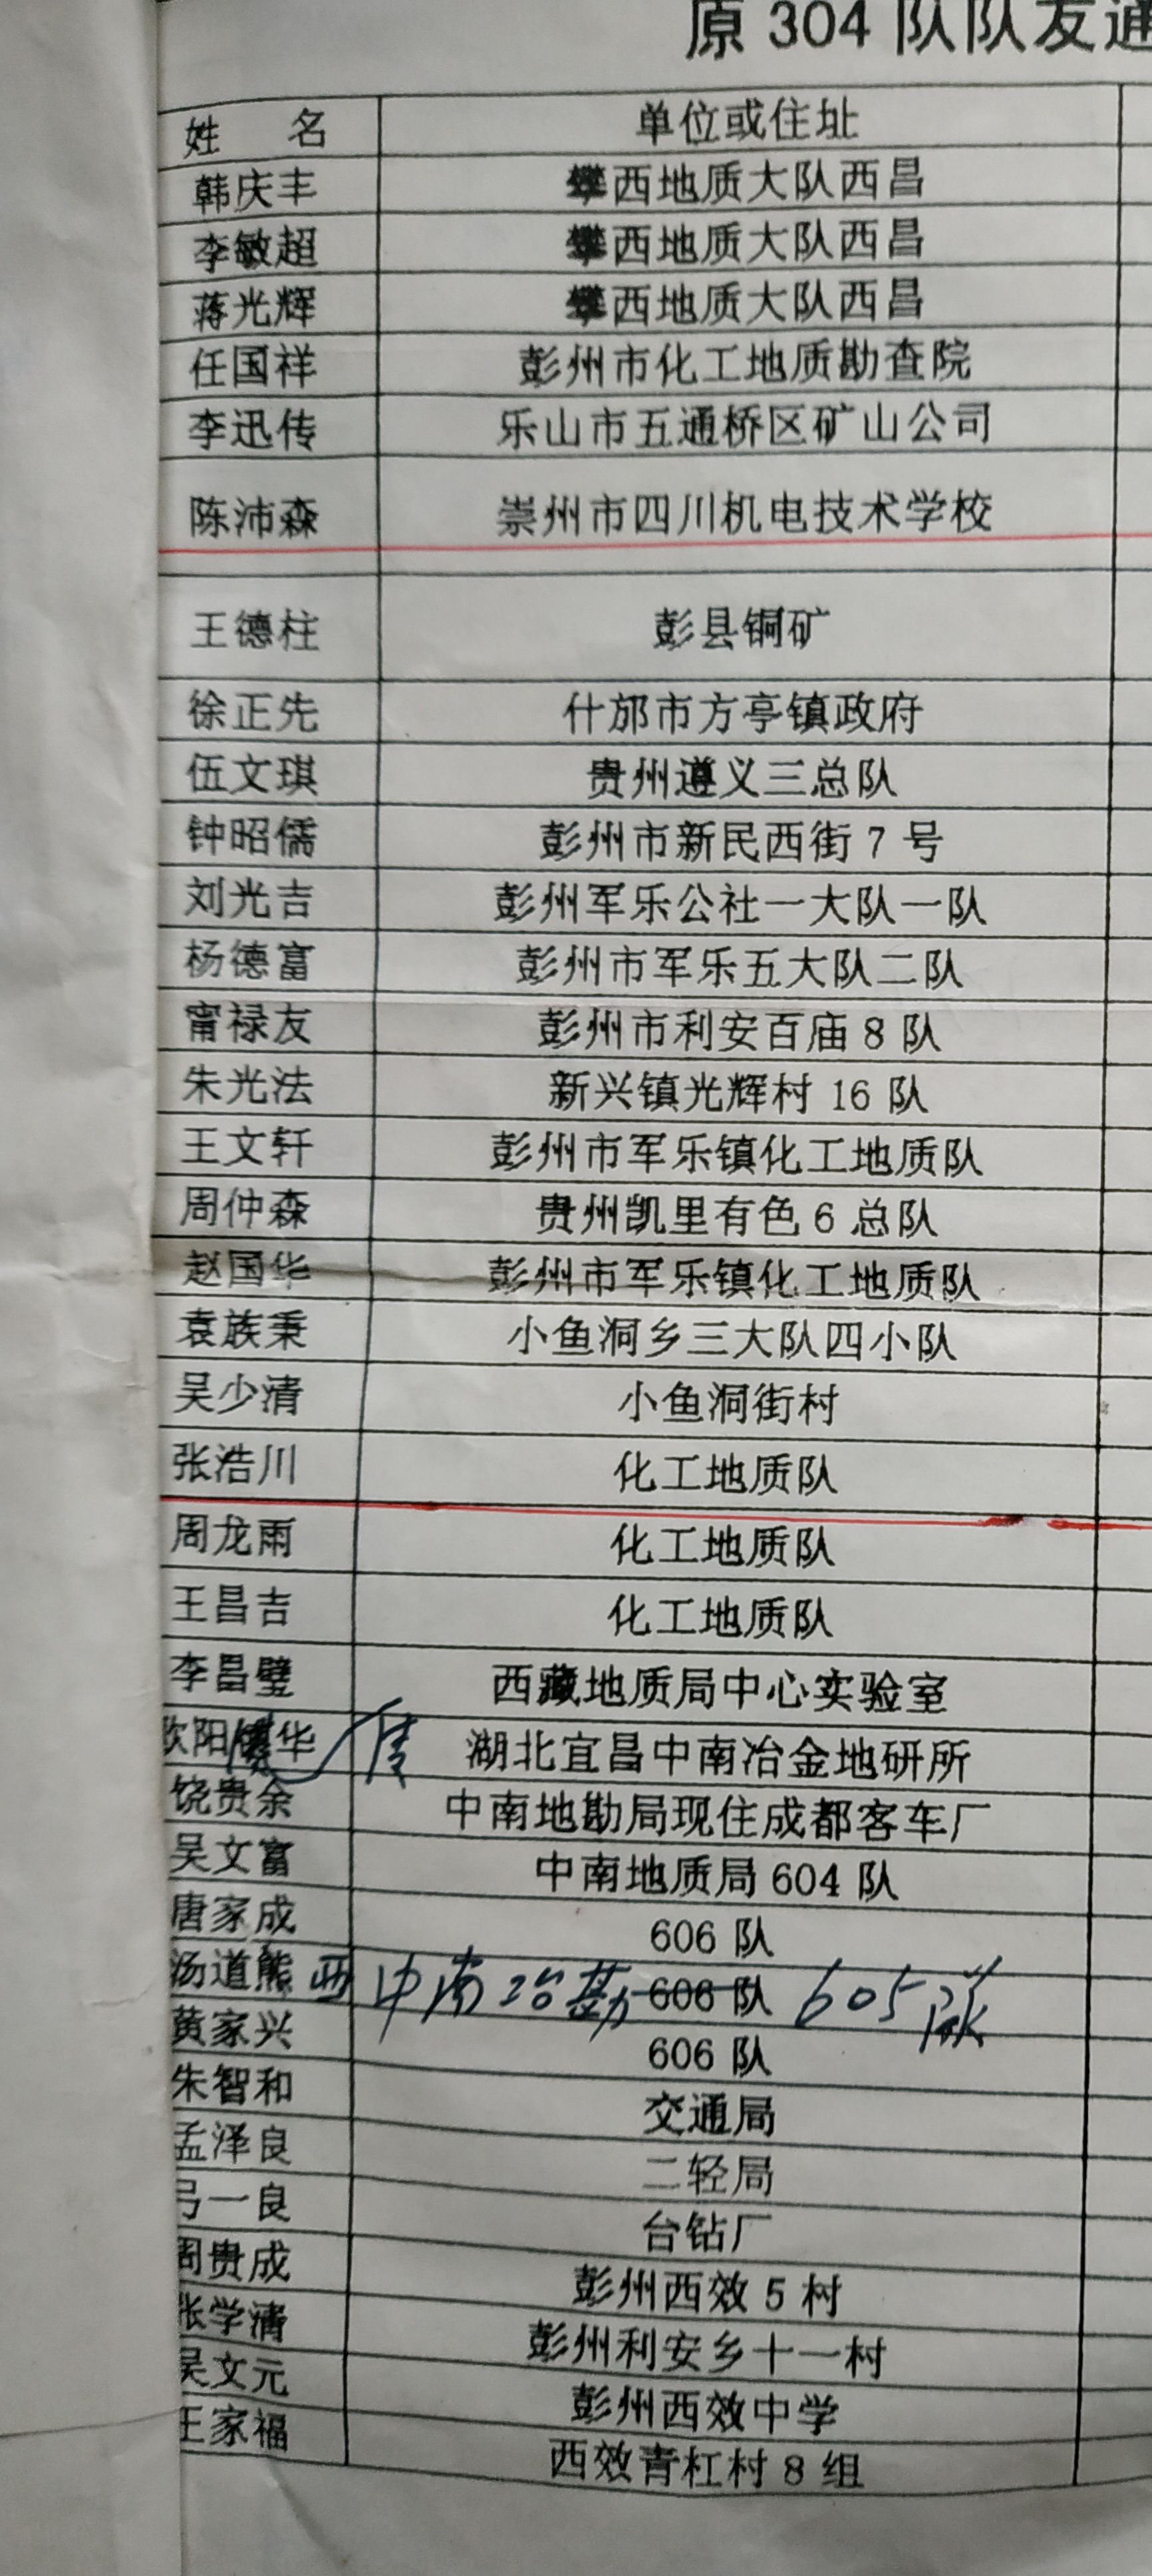 原304队队友通
姓 名 单位或住址
韩庆丰 攀西地质大队西昌
李敏超 攀西地质大队西昌
蒋光辉 攀西地质大队西昌
任国祥 彭州市化工地质勘查院
李迅传 乐山市五通桥区矿山公司
陈沛森 崇州市四川机电技术学校
王德柱 彭县铜矿
徐正先 什邡市方亭镇政府
伍文琪 贵州遵义三总队
钟昭儒 彭州市新民西街7号
刘光吉 彭州军乐公社一大队一队
杨德富 彭州市军乐五大队二队
甯禄友 彭州市利安百庙8队
朱光法 新兴镇光辉村16队
王文轩 彭州市军乐镇化工地质队
周仲森 贵州凯里有色6总队
赵国华 彭州市军乐镇化工地质队
袁族秉 小鱼洞乡三大队四小队
吴少清 小鱼洞街村
张浩川 化工地质队
周龙雨 化工地质队
王昌吉 化工地质队
李昌璧 西藏地质局中心实验室
欧阳华 湖北宜昌中南冶金地研所
饶贵余 中南地勘局现住成都客车厂
吴文富 中南地质局604队
唐家成 606队
汤道熊 中南冶勘 606队 605队
黄家兴 606队
朱智和 交通局
孟泽良 二轻局
弓一良 台钻厂
周贵成 彭州西效5村
张学清 彭州利安乡十一村
吴文元 彭州西效中学
王家福 西效青杠村8组